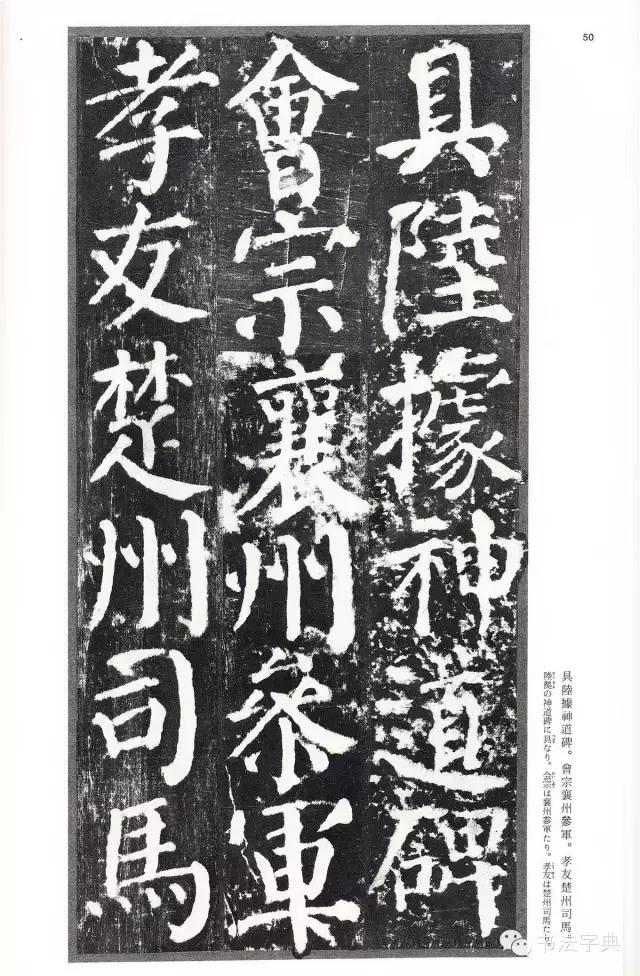 50
具陸據神道碑
會宗襄州參軍
孝友楚州司馬
具陸據神道碑。會宗襄州參軍。孝友楚州司馬
陸拠の神道碑に具なり。会宗は襄州参軍たり。孝友は楚州司馬たり。
书法字典